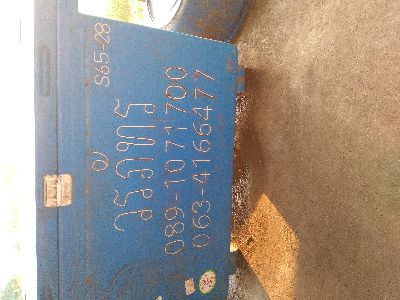 S65-28
วรภัทร
089-1071700
063-4166477